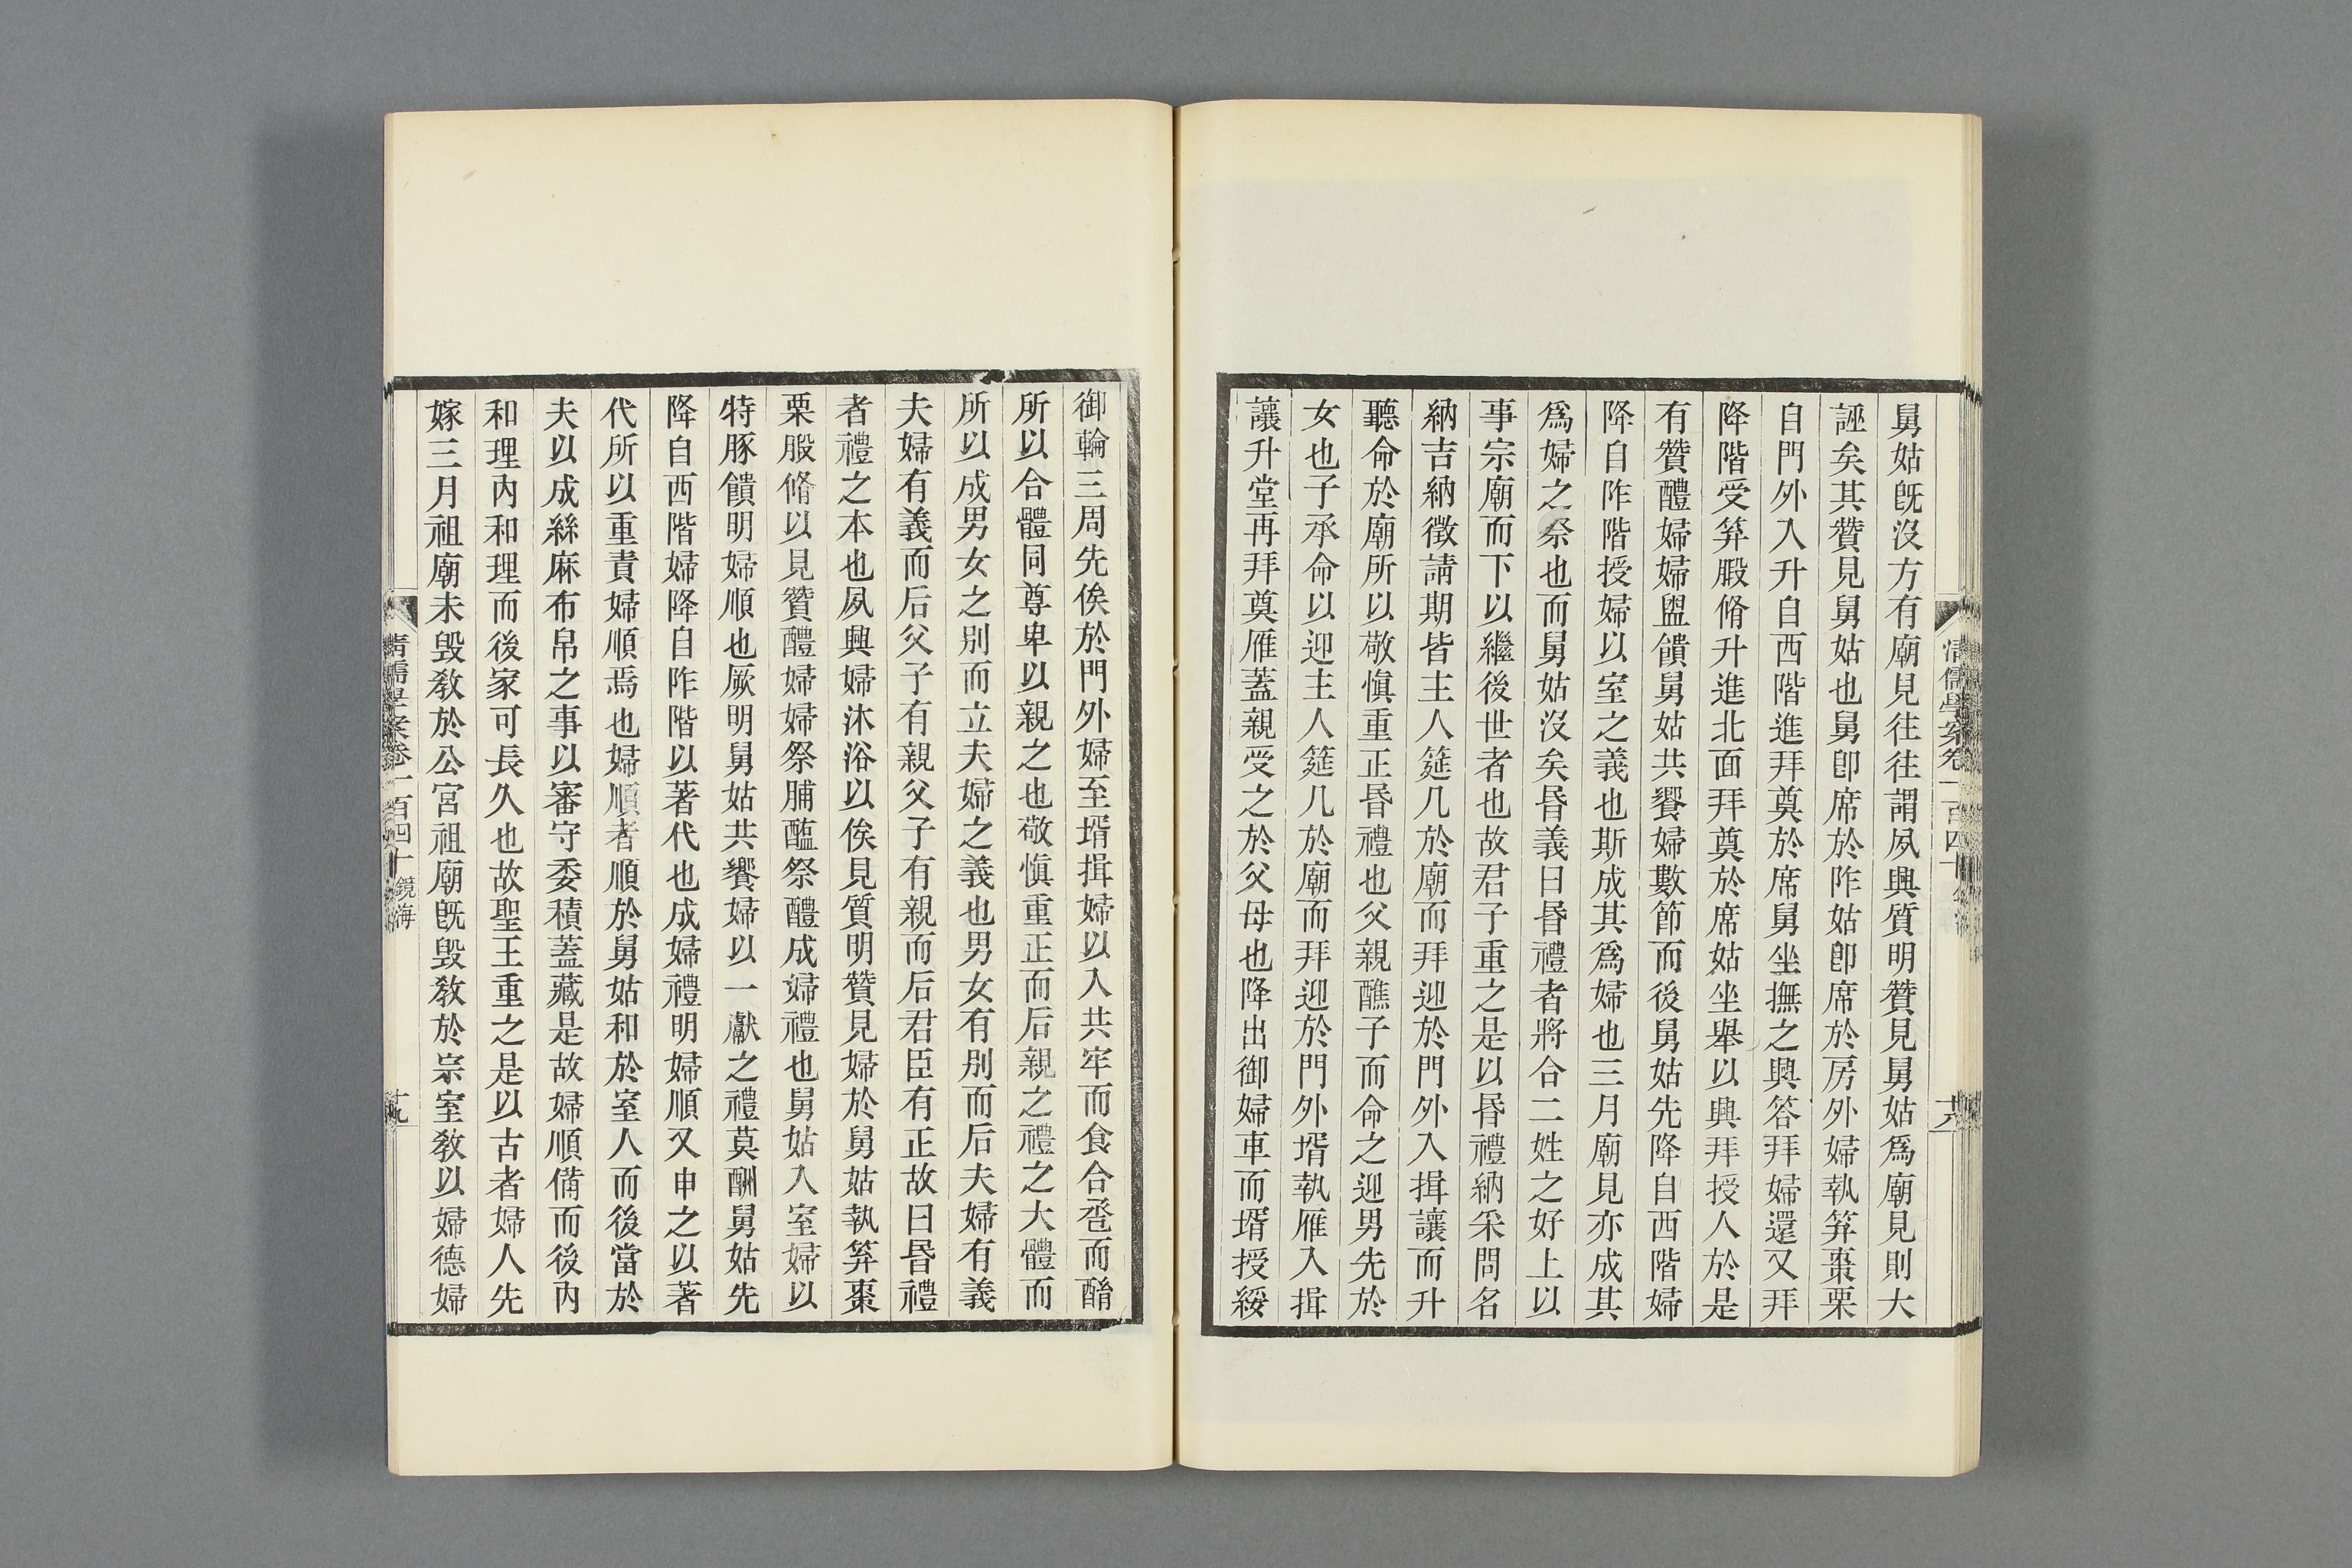 舅姑旣沒方有廟見往往謂夙興質明贊見舅姑爲廟見則大
誣矣其贊見舅姑也舅卽席於阼姑卽席於房外婦執笲棗栗
自門外入升自西階進拜奠於席舅坐撫之興答拜婦還又拜
降階受笲腶脩升進北面拜奠於席姑坐舉以興拜授人於是
有贊醴婦婦盥饋舅姑共饗婦數節而後舅姑先降自西階婦
降自阼階授婦以室之義也斯成其爲婦也三月廟見亦成其
爲婦之祭也而舅姑沒矣昏義曰昏禮者將合二姓之好上以
事宗廟而下以繼後世者也故君子重之是以昏禮納采問名
納吉納徵請期皆主人筵几於廟而拜迎於門外入揖讓而升
聽命於廟所以敬愼重正昏禮也父親醮子而命之迎男先於
女也子承命以迎主人筵几於廟而拜迎於門外壻執雁入揖
讓升堂再拜奠雁蓋親受之於父母也降出御婦車而壻授綏
清儒學案卷一百四十
十八
御輪三周先俟於門外婦至壻揖婦以入共牢而食合卺而酳
所以合體同尊卑以親之也敬愼重正而后親之禮之大體而
所以成男女之別而立夫婦之義也男女有別而后夫婦有義
夫婦有義而后父子有親父子有親而后君臣有正故曰昏禮
者禮之本也夙興婦沐浴以俟見質明贊見婦於舅姑執笲棗
栗腶脩以見贊醴婦婦祭脯醢祭醴成婦禮也舅姑入室婦以
特豚饋明婦順也厥明舅姑共饗婦以一獻之禮莫酬舅姑先
降自西階婦降自阼階以著代也成婦禮明婦順又申之以著
代所以重責婦順焉也婦順者順於舅姑和於室人而後當於
夫以成絲麻布帛之事以審守委積蓋藏是故婦順備而後內
和理內和理而後家可長久也故聖王重之是以古者婦人先
嫁三月祖廟未毁敎於公宮祖廟旣毁敎於宗室敎以婦德婦
清儒學案卷一百四十 鏡海
十九